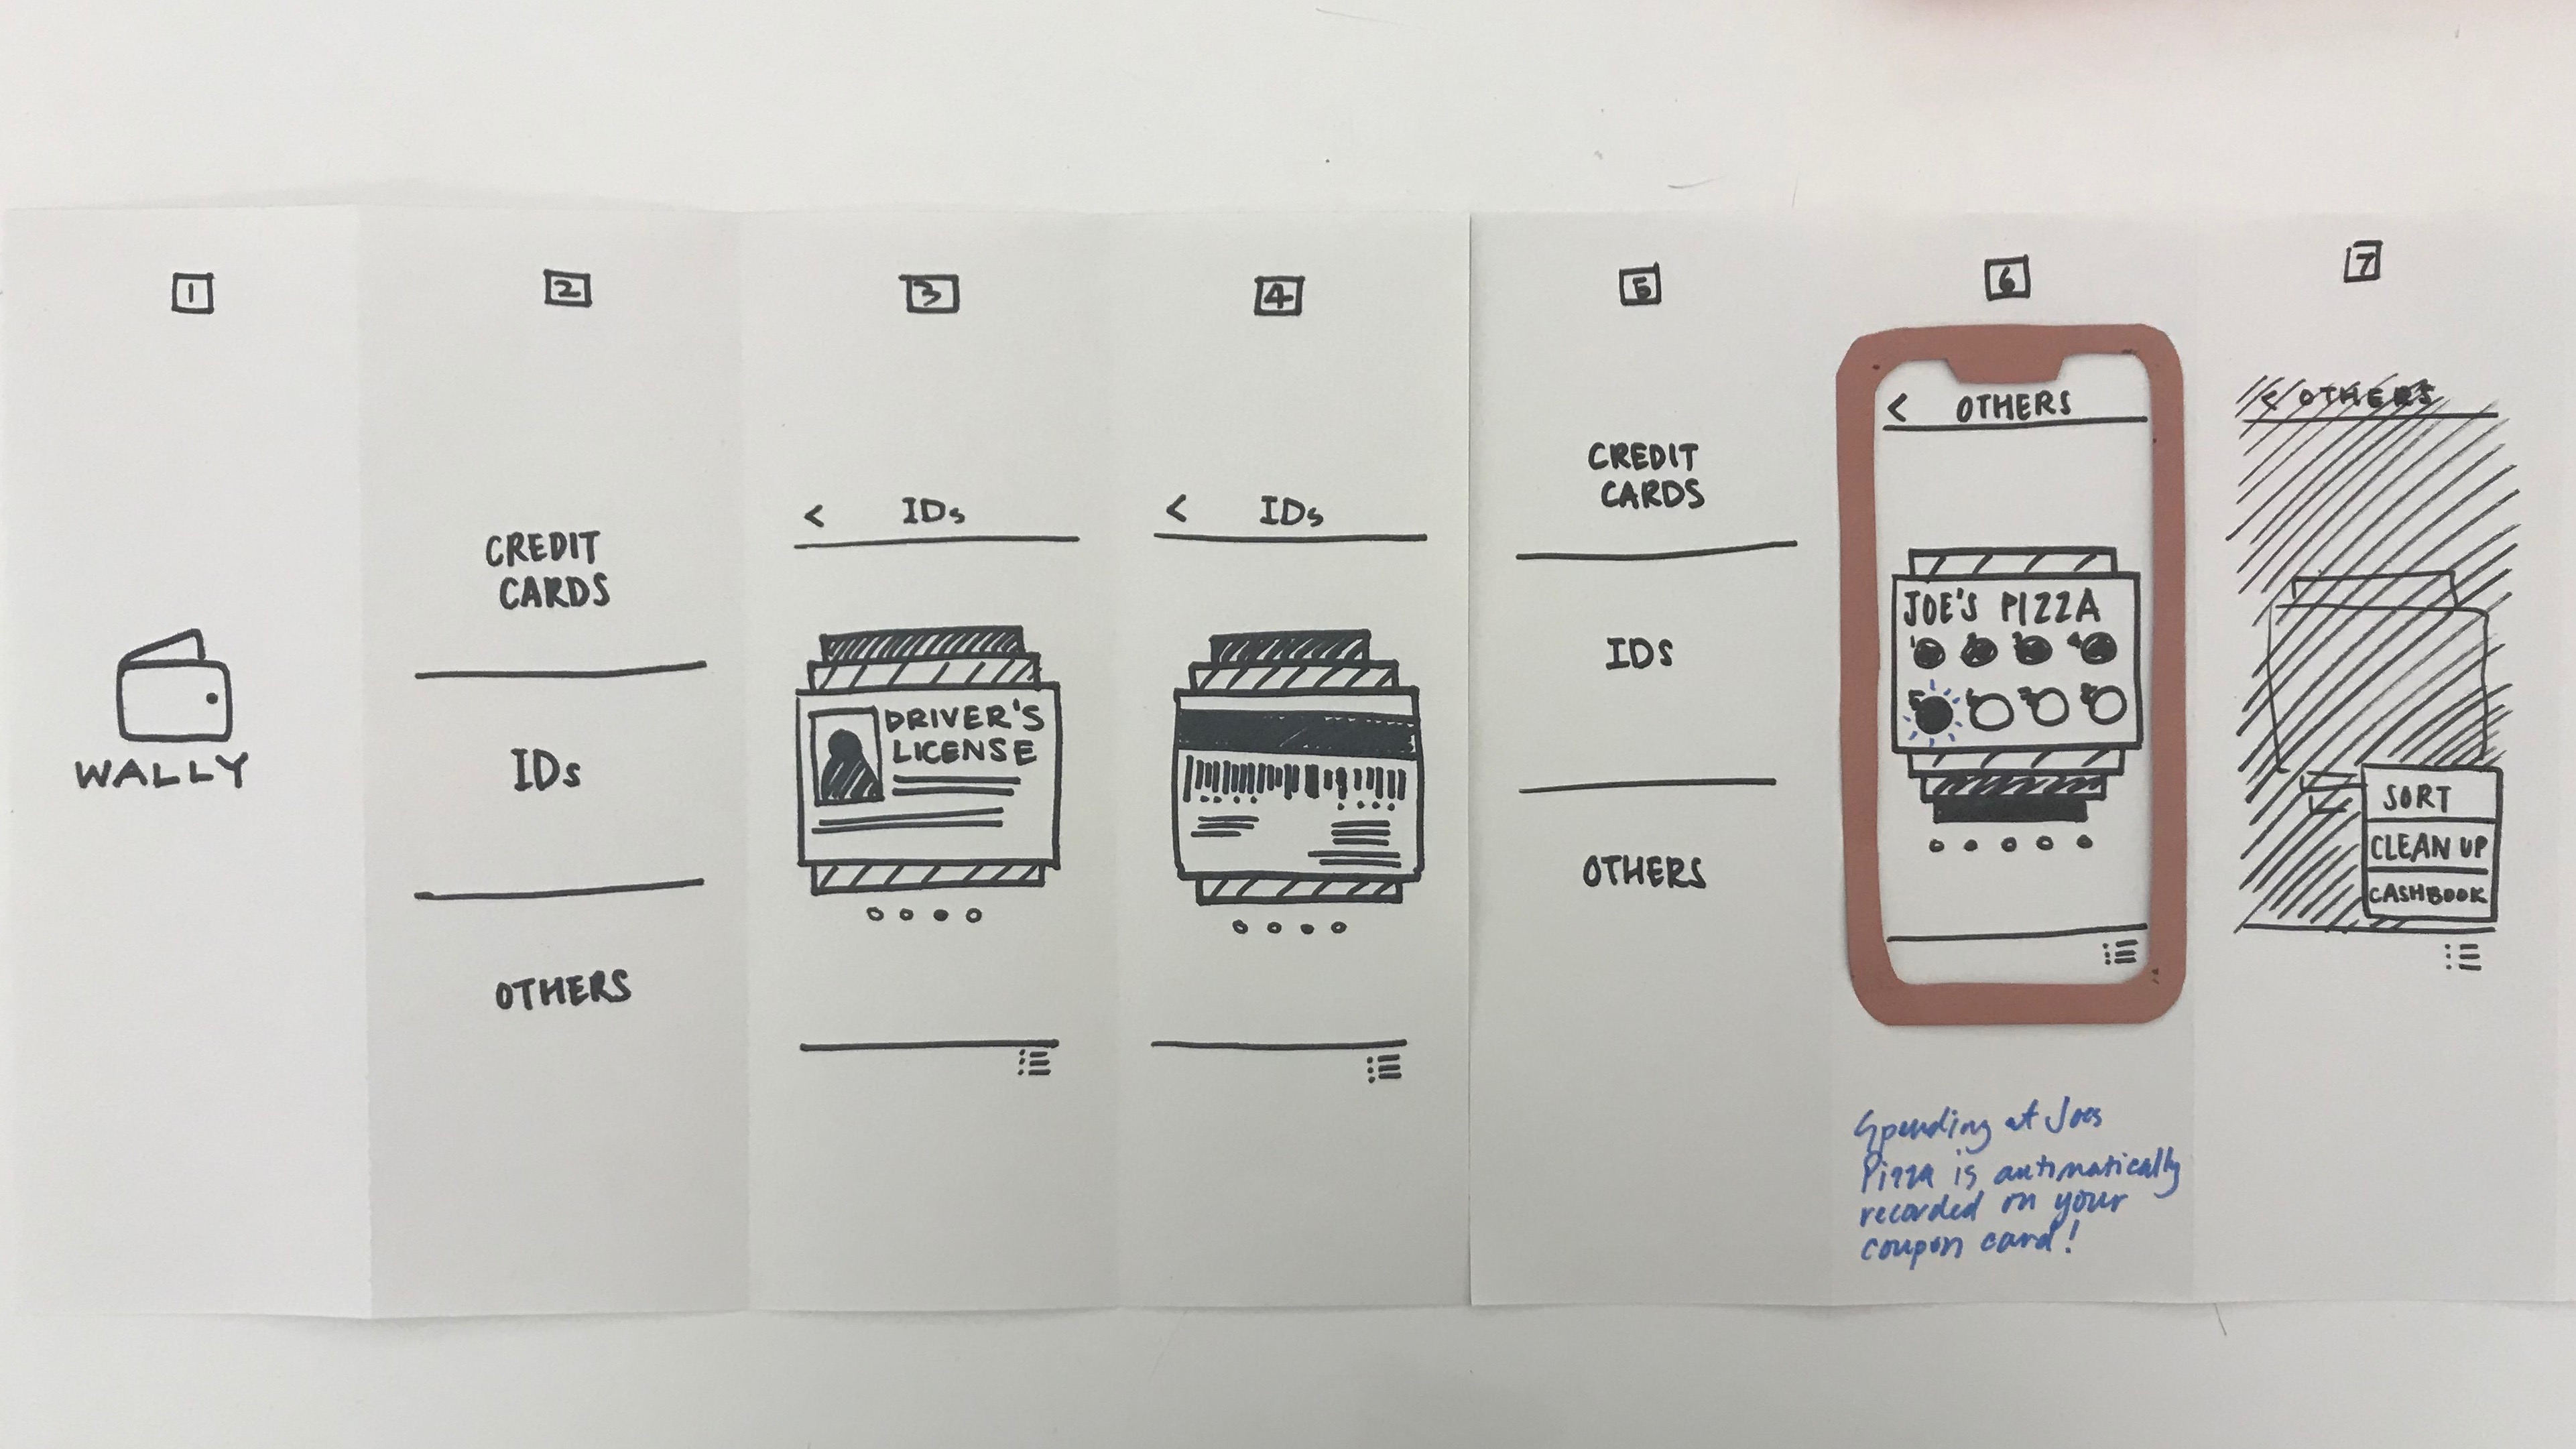 1
WALLY
2
CREDIT
CARDS
IDs
OTHERS
3
< IDs
DRIVER'S
LICENSE
4
< IDs
5
CREDIT
CARDS
IDs
OTHERS
6
< OTHERS
JOE'S PIZZA
1 2 3 4
5 6 7 8
Spending at Joes
Pizza is automatically
recorded on your
coupon card!
7
< OTHERS
SORT
CLEAN UP
CASHBOOK